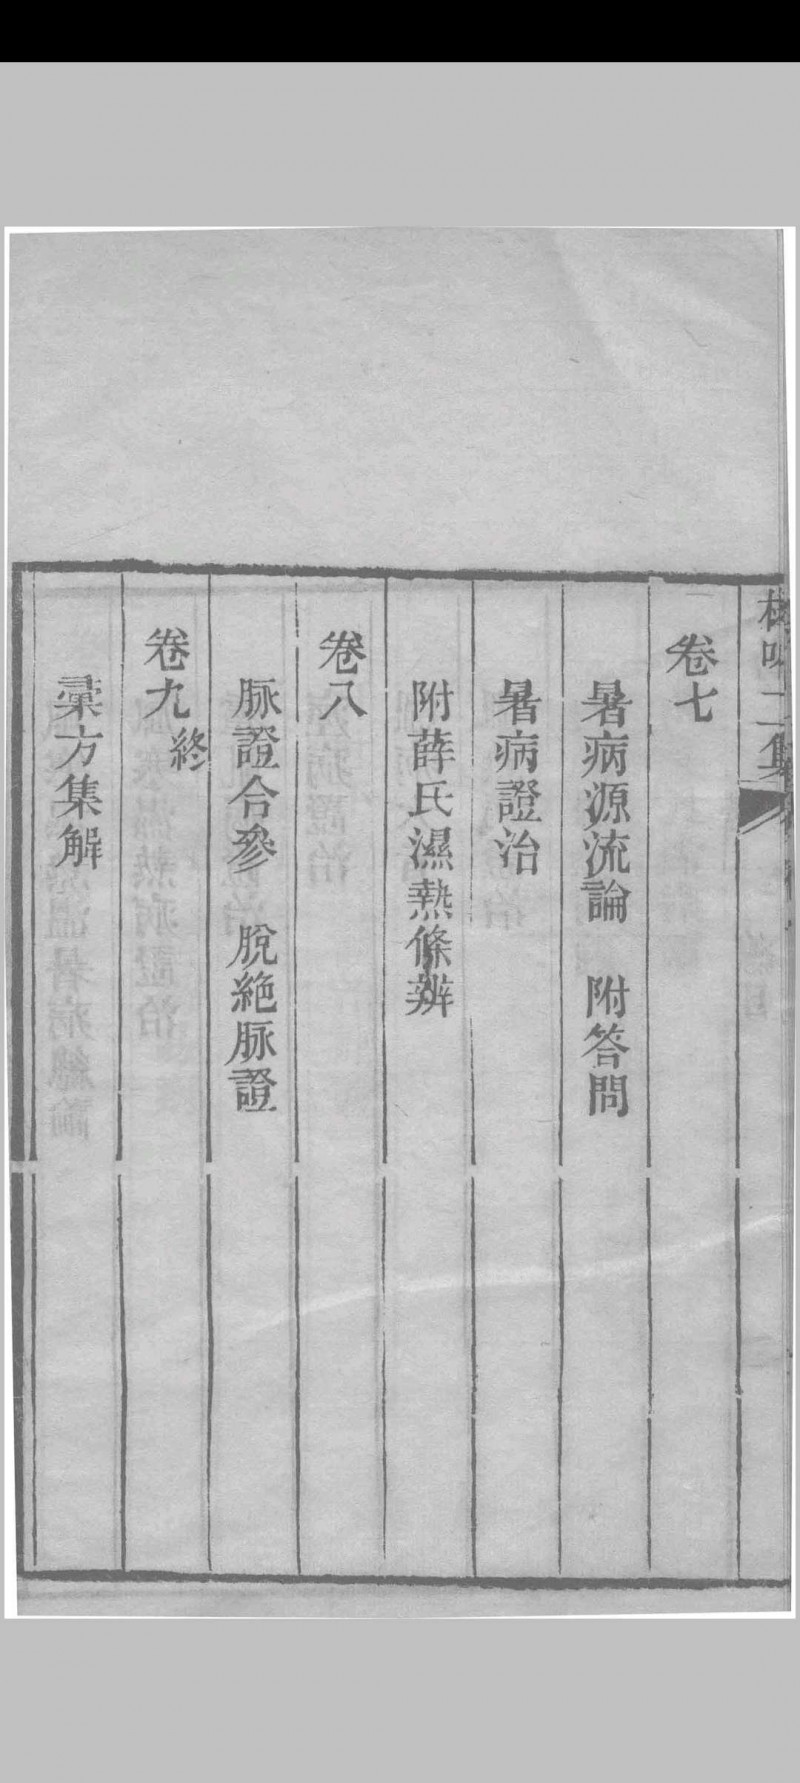 卷七
暑病源流論　附答問
暑病證治
附薛氏濕熱條辨
卷八
脈證合參　脫絕脈證
卷九終
彙方集解
二集